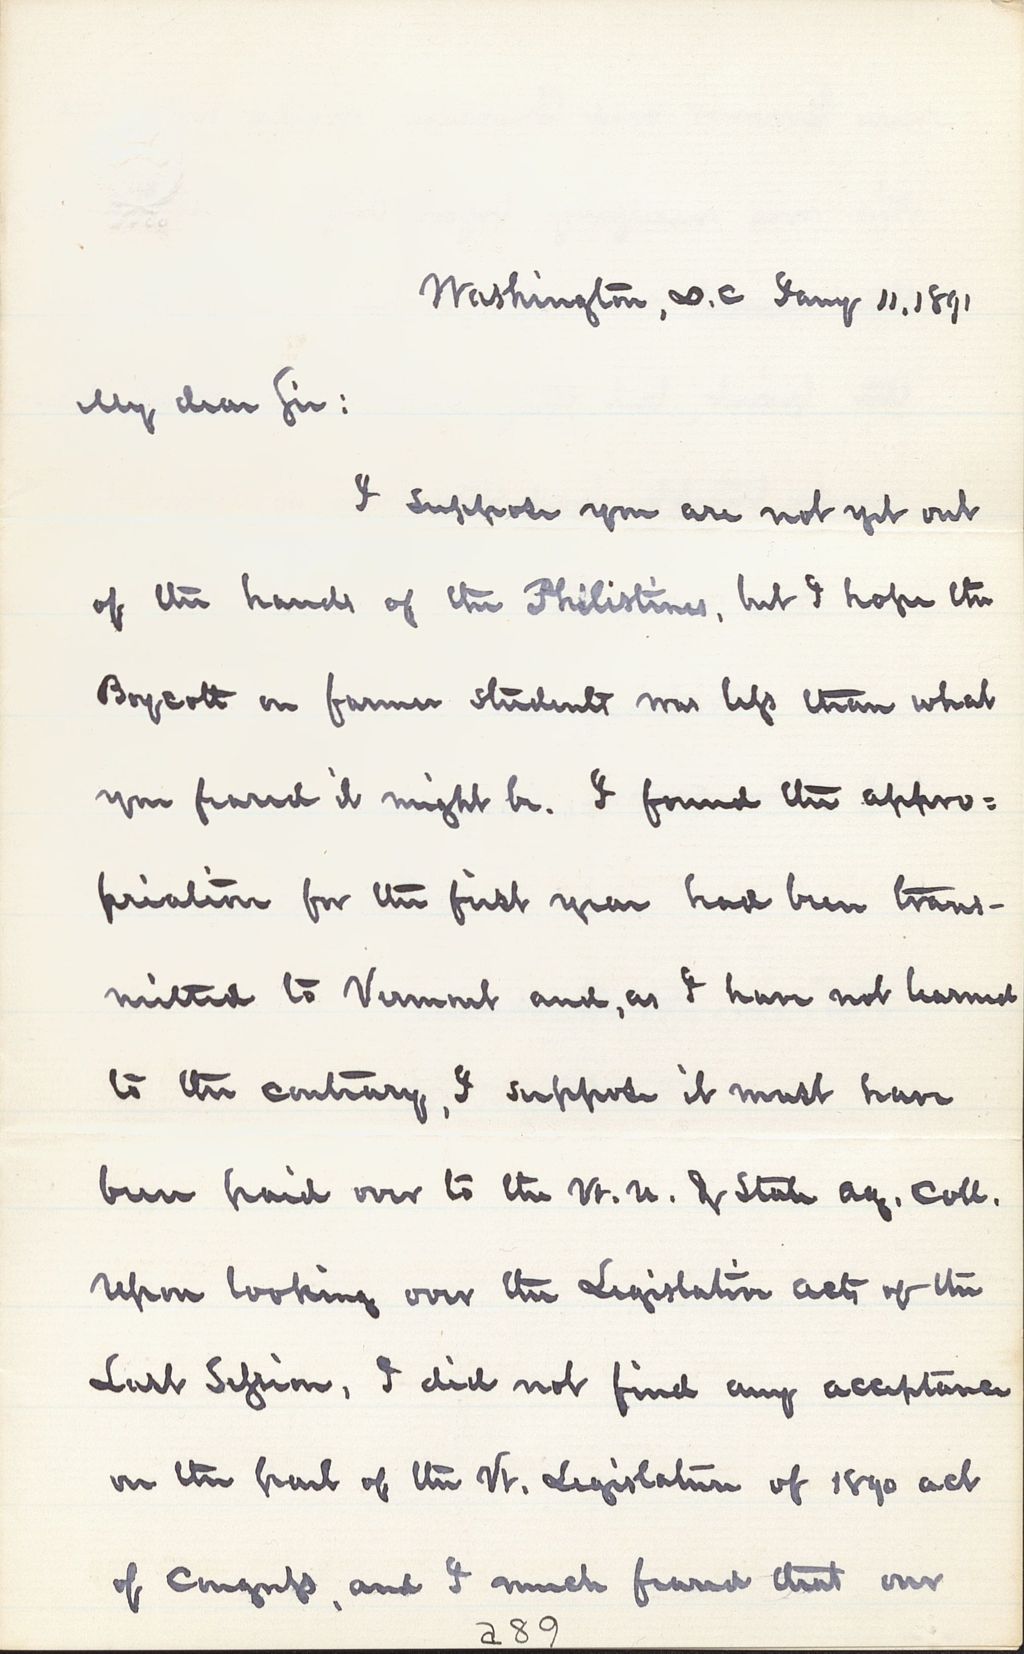 Washington, D.C Jany 11, 1891
My dear Sir:
I suppose you are not yet out
of the hands of the Philistines, but I hope the
Boycott on farmer students was less than what
you feared it might be. I found the appro=
priation for the first year had been trans-
mitted to Vermont and, as I have not learned
to the contrary, I suppose it must have
been paid over to the Vt. U. & State Ag. Coll.
Upon looking over the Legislative acts of the
Last Session, I did not find any acceptance
on the part of the Vt. Legislature of 1890 act
of Congress, and I much feared that our
289